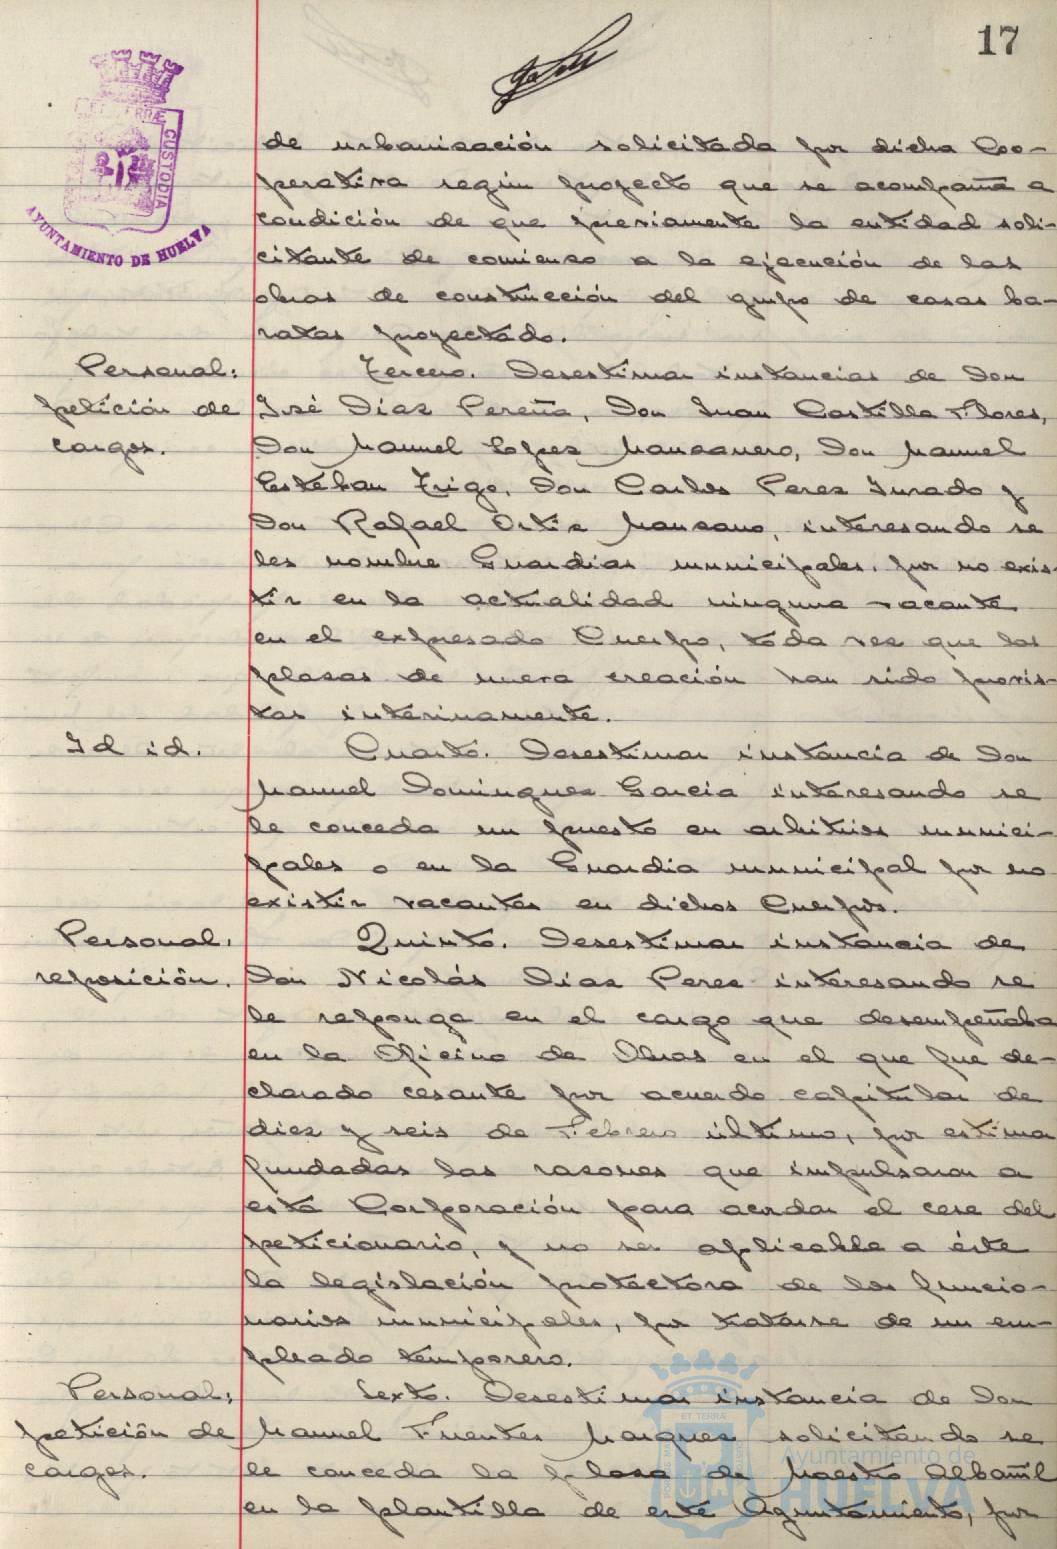 17
ET TERRÆ
CUSTODIA
AYUNTAMIENTO DE HUELVA
de urbanización solicitada por dicha Coo-
perativa según proyecto que se acompaña a
condición de que previamente la entidad soli-
citante de comienzo a la ejecución de las
obras de construcción del grupo de casas ba-
ratas proyectado.
Personal: Tercero. Desestimar instancias de Don
petición de José Diaz Pereña, Don Juan Castilla Flores,
cargos. Don Manuel Lopez Manzanero, Don Manuel
Esteban Trigo, Don Carlos Perez Jurado y
Don Rafael Ortiz Manzano, interesando se
les nombre Guardias municipales, por no exis-
tir en la actualidad ninguna vacante
en el expresado Cuerpo, toda vez que las
plazas de nueva creación han sido provis-
tas interinamente.
Id id. Cuarto. Desestimar instancia de Don
Manuel Dominguez Garcia interesando se
le conceda un puesto en arbitrios munici-
pales o en la Guardia municipal por no
existir vacantes en dichos Cuerpos.
Personal, Quinto. Desestimar instancia de
reposición. Don Nicolás Diaz Perez interesando se
le reponga en el cargo que desempeñaba
en la Oficina de Obras en el que fue de-
clarado cesante por acuerdo capitular de
diez y seis de Febrero último, por estimar
fundadas las razones que impulsaron a
esta Corporación para acordar el cese del
peticionario, y no ser aplicable a éste
la legislación protectora de los funcio-
narios municipales, por tratarse de un em-
pleado temporero.
Personal; Sexto. Desestimar instancia de Don
petición de Manuel Fuentes Marquez solicitando se
cargos. le conceda la plaza de Maestro Albañil
en la plantilla de este Ayuntamiento, por
Ayuntamiento de
HUELVA